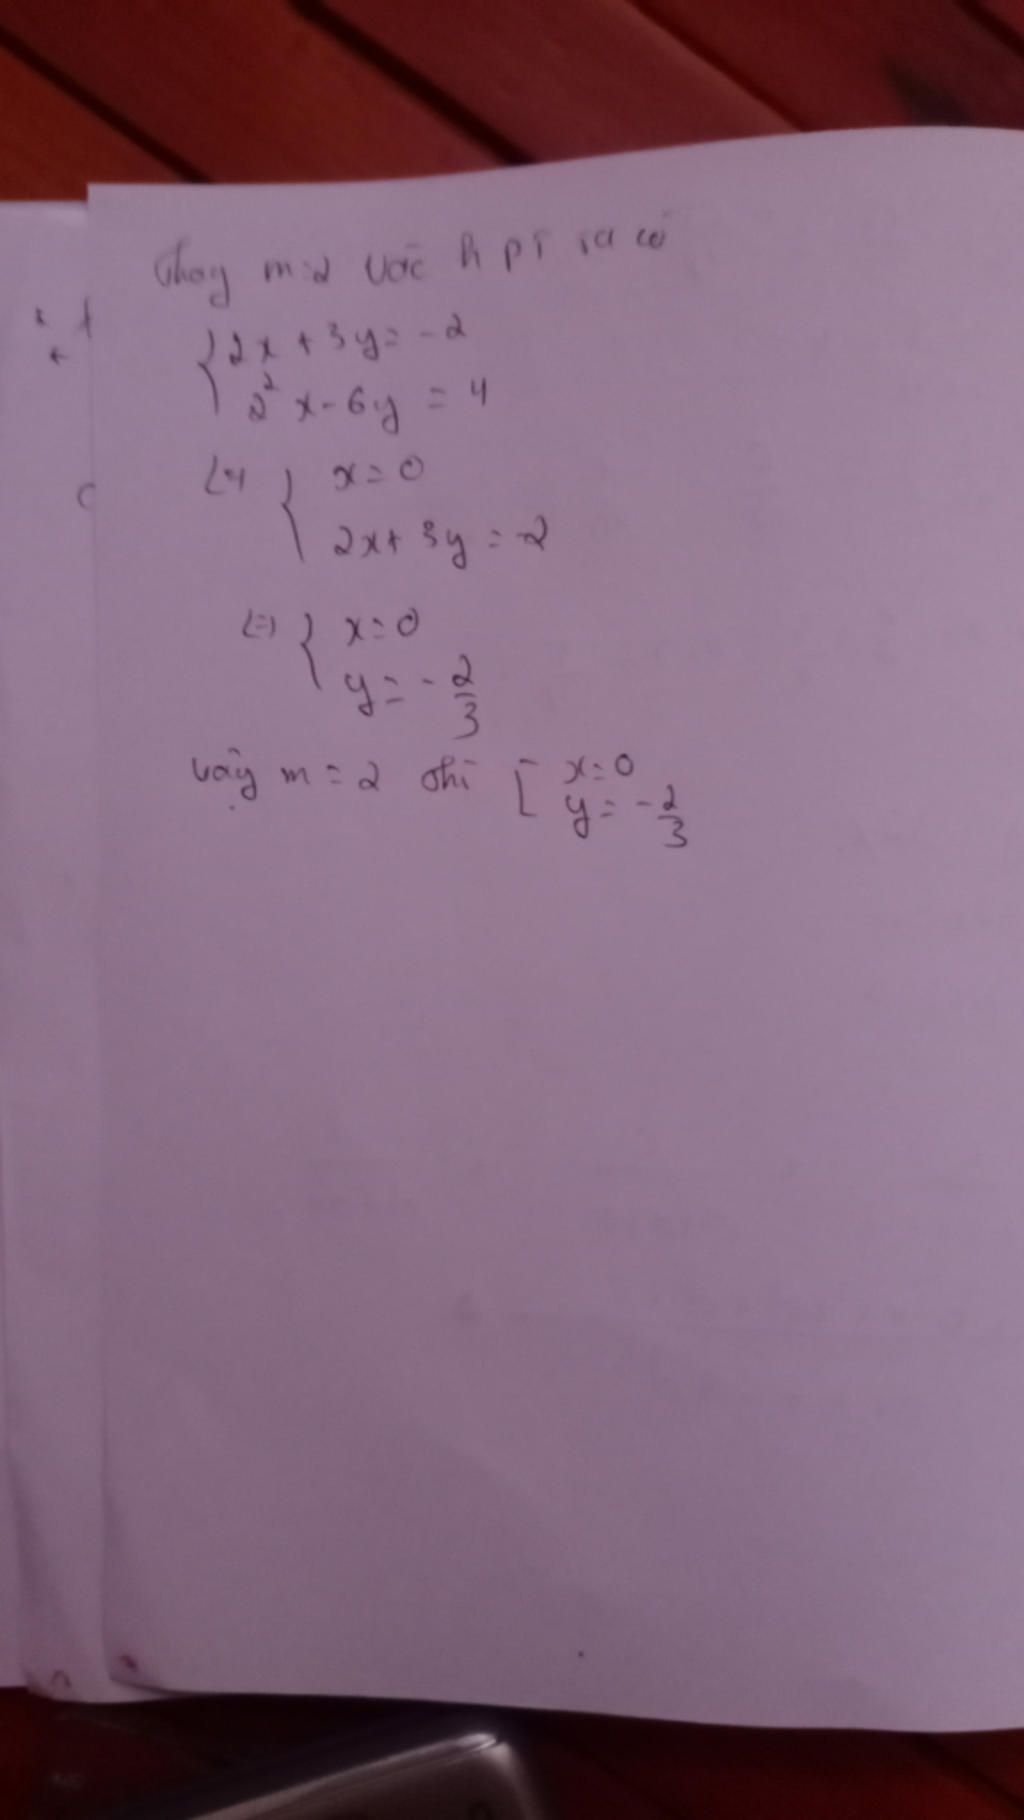 Thay m=2 vào hpt ta có
{ 2x + 3y = -2
2² x - 6y = 4
<=> { x = 0
2x + 3y = -2
<=> { x = 0
y = - 2/3
Vậy m = 2 thì [ x = 0
y = - 2/3